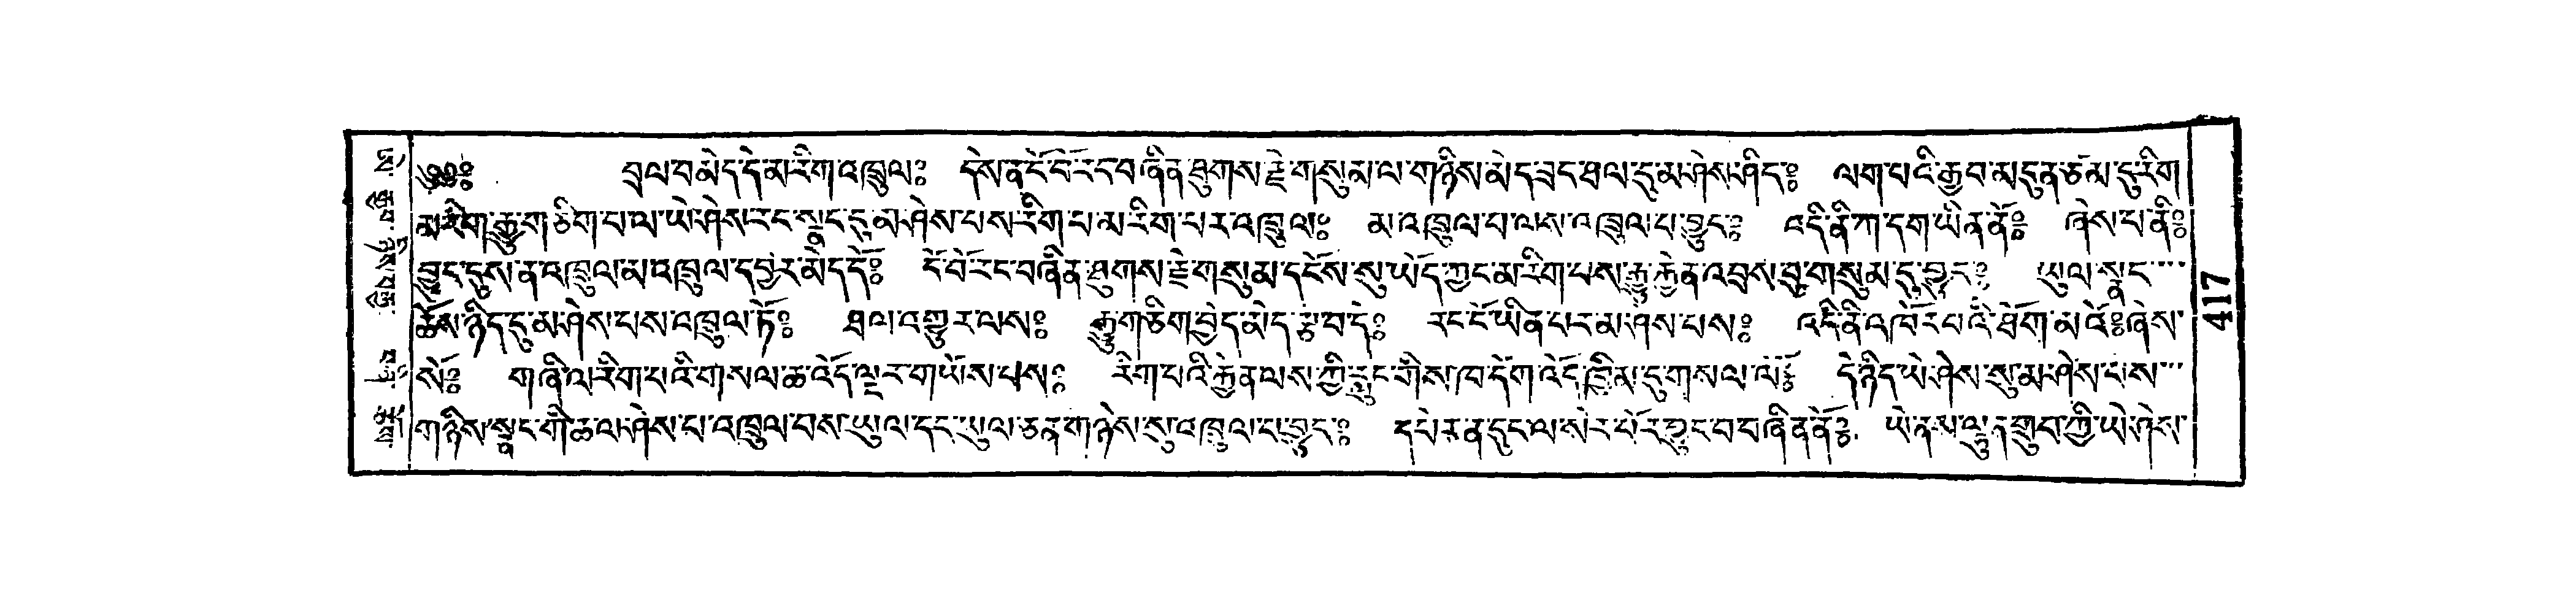 ༄༅༔ བྲལ་བ་མེད་དེ་མ་རིག་འཁྲུལ༔ དེས་ན་ངོ་བོ་རང་བཞིན་ཐུགས་རྗེ་གསུམ་ལ་གཉིས་མེད་བྲང་ཐལ་དུ་མ་ཤེས་ཤིད༔ ལག་པའི་རྒྱབ་མདུན་ཙམ་དུ་རིག
མ་རིག་རྒྱུ་གཅིག་པ་ལ་ཡེ་ཤེས་རང་སྣང་དུ་མ་ཤེས་པས་རིག་པ་མ་རིག་པར་འཁྲུལ༔ མ་འཁྲུལ་པ་ལས་འཁྲུལ་པ་བྱུང༔ འདི་ནི་ཀ་དག་ཡིན་ནོ༔ ཞེས་པ་ནི༔
བྱུང་དུས་ན་འཁྲུལ་མ་འཁྲུལ་དབྱེར་མེད་དོ༔ ངོ་བོ་རང་བཞིན་ཐུགས་རྗེ་གསུམ་དངོས་སུ་ཡོད་ཀྱང་མ་རིག་པས་རྒྱུ་རྐྱེན་འབྲས་བུ་གསུམ་དུ་བྱུང༔ ཡུལ་སྣང་
ཆོས་ཉིད་དུ་མ་ཤེས་པས་འཁྲུལ་ཏོ༔ ཐལ་འགྱུར་ལས༔ རྒྱུ་གཅིག་བྱེད་མེད་རྩ་བ་དེ༔ རང་ངོ་ཡིན་པར་མ་ཤེས་པས༔ འདི་ནི་འཁོར་བའི་ཐོག་མའོ༔ཞེས་
སོ༔ གཞི་ལ་རིག་པའི་གསལ་ཆ་འོད་ལྟར་གཡོས་པས༔ རིག་པའི་རྐྱེན་ལས་ཀྱི་རླུང་གིས་ཁ་དོག་འོད་ཁྱིམ་དུ་གསལ་ལོ༔ དེ་ཉིད་ཡེ་ཤེས་སུ་མ་ཤེས་པས་
གཉིས་སྣང་གི་ཆ་ལ་ཤེས་པ་འཁྲུལ་པས་ཡུལ་དང་ཡུལ་ཅན་གཉིས་སུ་འཁྲུལ་པ་བྱུང༔ དཔེར་ན་དུང་ལ་སེར་པོར་བྱུང་བ་བཞིན་ནོ༔ ཡེ་ནས་ལྷུན་གྲུབ་ཀྱི་ཡེ་ཤེས་